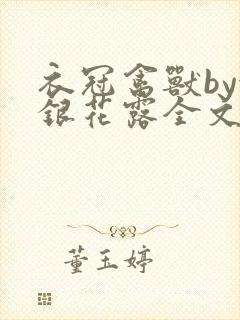 衣冠禽獸by
銀花露全文
董玉婷